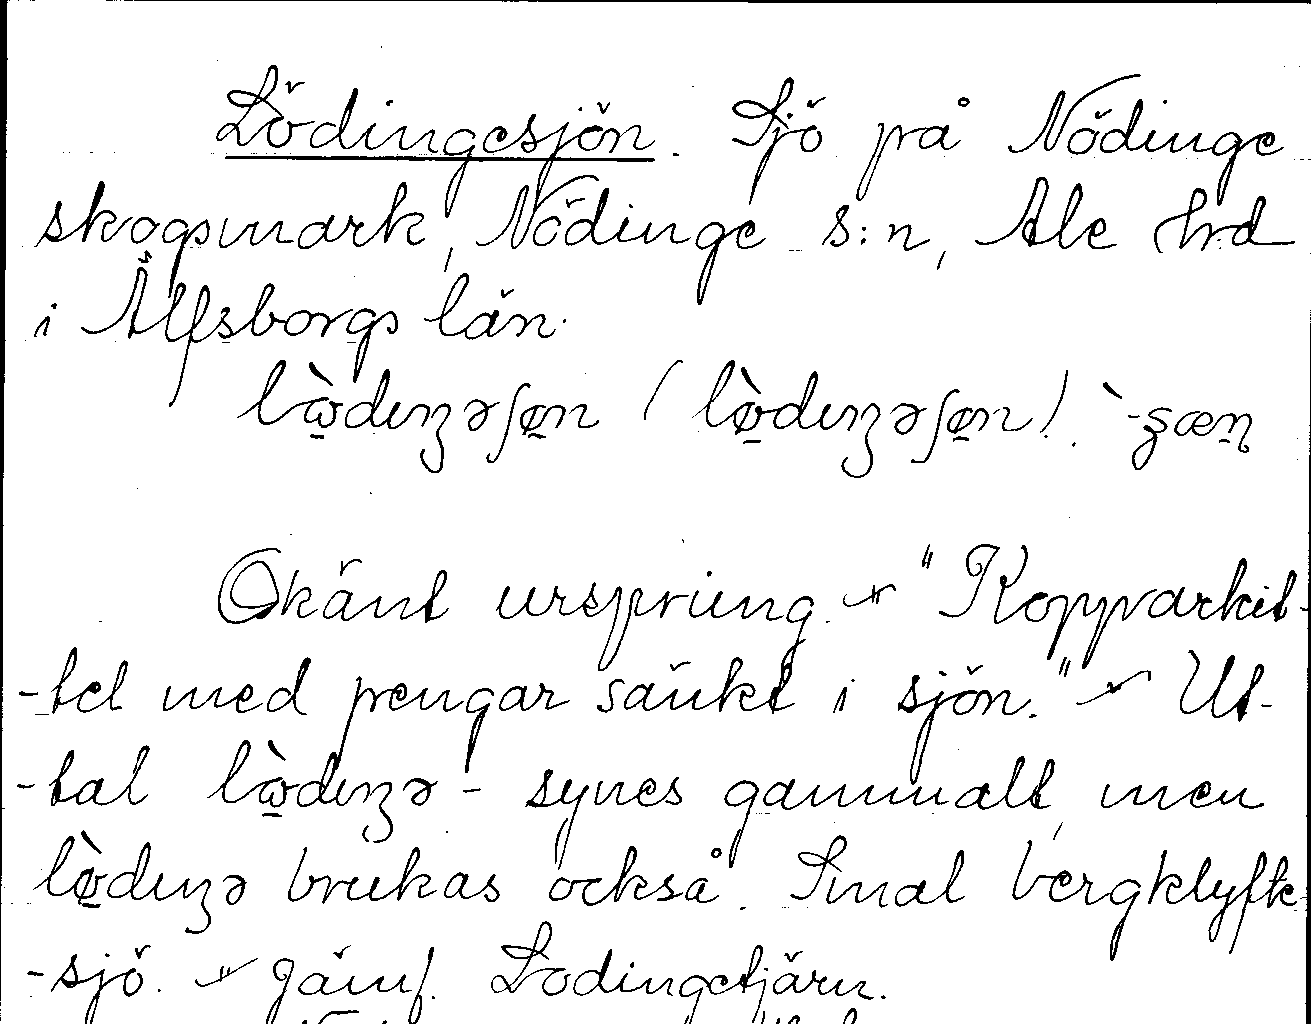 Lödingesjön. Sjö på Nödinge
skogsmark, Nödinge s:n, Ale hrd
i Älfsborgs län.
Okänt ursprung. - "Kopparkit-
-tel med pengar sänkt i sjön." - Ut-
-tal - synes gammalt, men
brukas också. Smal bergklyfte
-sjö. - Jämf. Lodingetjärn.